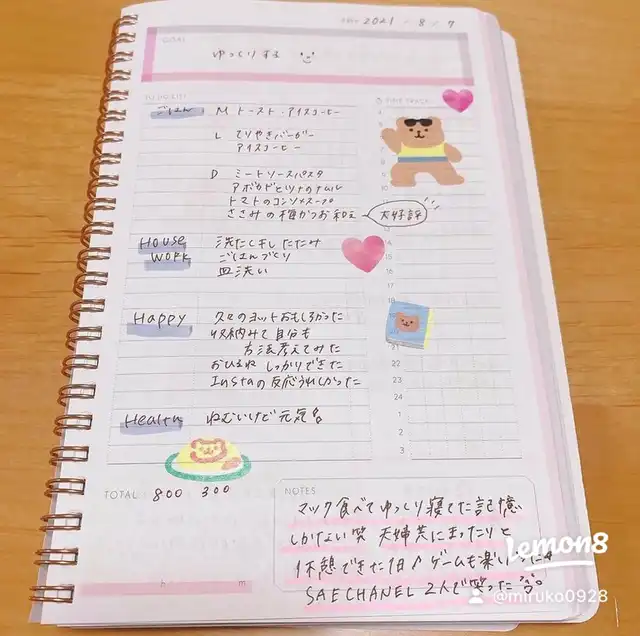 2021 . 8 / 7
GOAL
ゆっくりする
ごはん M トースト・アイスコーヒー
TIME TRACK
L てりやきバーガー
アイスコーヒー
D ミートソースパスタ
アボカドとツナのナムル
トマトのコンソメスープ
ささみの梅かつお和え
大好評
House Work 洗たく干したたみ
ごはんづくり
皿洗い
Happy 久々のヨットおもしろかった
収納みて自分も
方法考えてみた
おひるね しっかりできた
Instaの反応うれしかった
Health ねむいけど元気
14
15
16
22
23
24
1
2
3
TOTAL 800 300
h m
NOTES
マック食べてゆっくり寝てた記憶
しかない笑 夫婦共にまったりと
休憩できた1日♪ ゲームも楽し
SAECHANEL 2人で笑った
Lemon8
@miruko0928